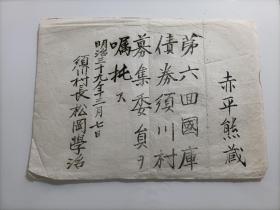 赤平熊藏
第六回國庫
債券須川村
募集委員ヲ
嘱托ス
明治三十九年三月七日
須川村長松岡學治